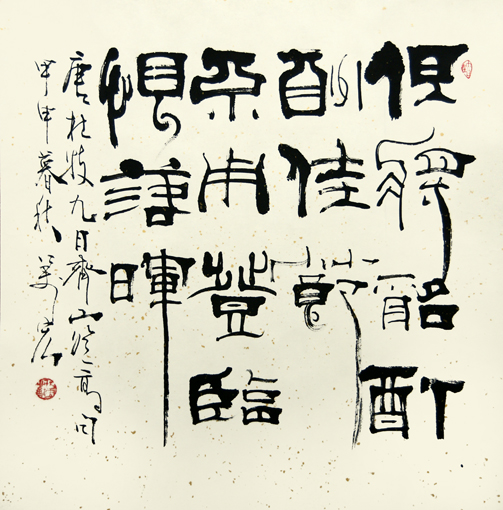 但將酩酊
酬佳節
不用登臨
恨落暉
唐杜牧九日齊山登高句
甲申暮秋